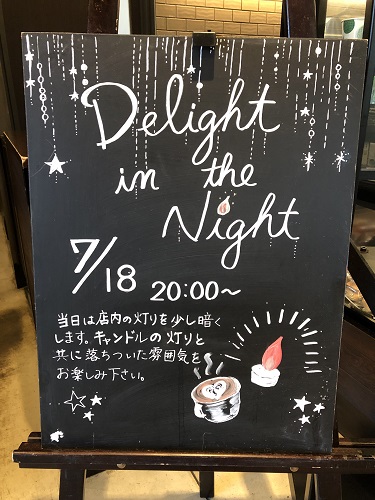 Delight
in the
Night
7/18 20:00～
当日は店内の灯りを少し暗く
します。キャンドルの灯りと
共に落ちついた雰囲気を
お楽しみ下さい。